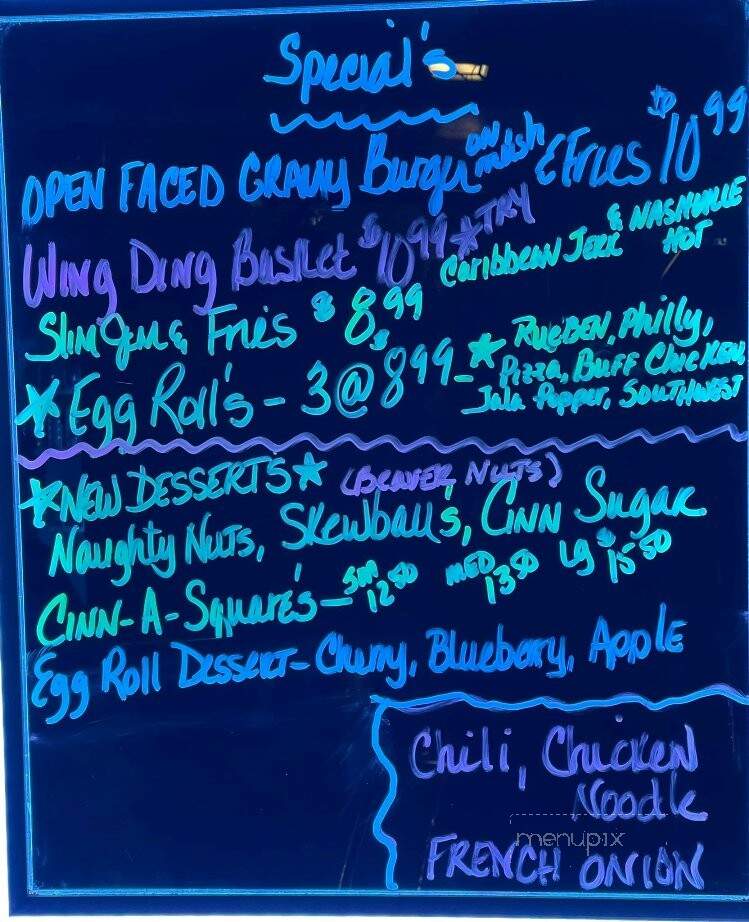 Special's
OPEN FACED GRAVY Burger ON mash & Fries $10 99
WING DING Basket $10 99 * TRY Caribbean Jerk & NASHVILLE HOT
Slim Jim & Fries $8 99
* Egg Roll's - 3 @ $8 99 - * RUEBEN, Philly,
Pizza, BUFF CHICKEN,
Jala Popper, SOUTHWEST
* NEW DESSERTS * (BEAVER NUTS)
Naughty Nuts, Skewball's, CINN Sugar
CINN-A-Square's - SM 12 50 MED 13 50 LG $15 50
Egg Roll DESSERT - Cherry, Blueberry, Apple
Chili, Chicken
Noodle
FRENCH ONION
menupix